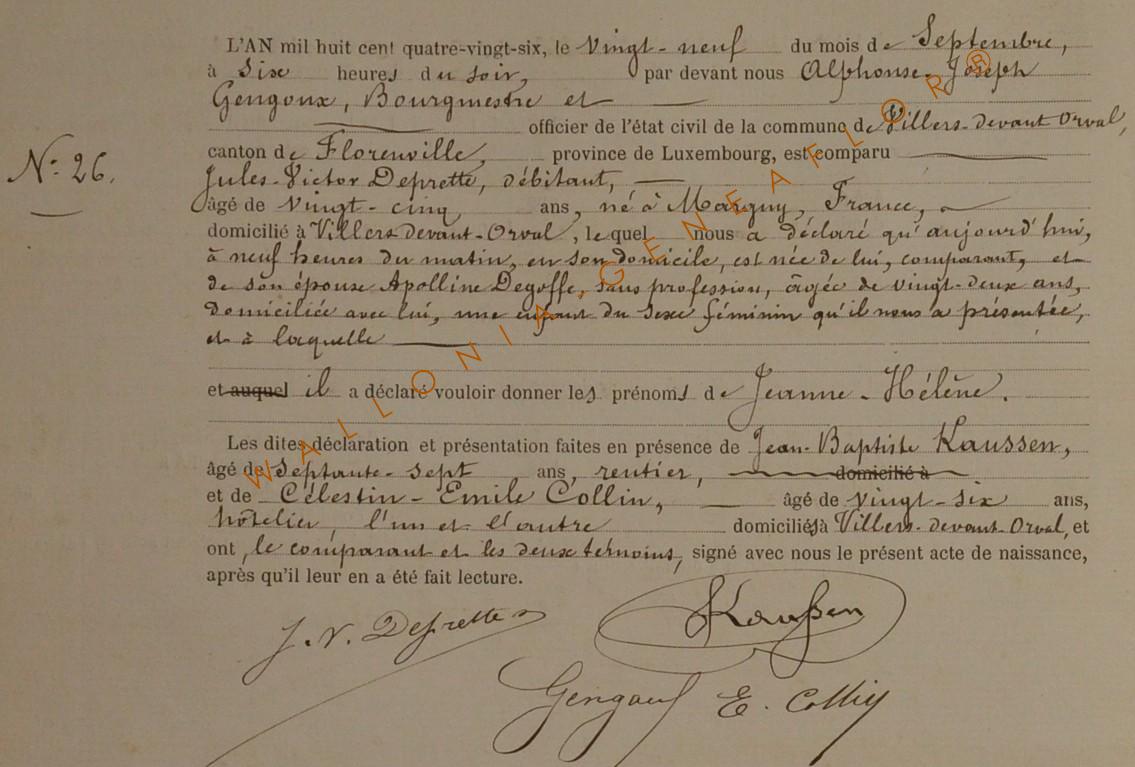 L'AN mil huit cent quatre-vingt-six, le Vingt-neuf du mois de Septembre,
à Six heures du soir, par devant nous Alphonse-Joseph
Gengoux, Bourgmestre et
officier de l'état civil de la commune de Villers-devant Orval,
canton de Florenville, province de Luxembourg, est comparu
N: 26.
Jules-Victor Deprette, débitant,
âgé de Vingt-cinq ans, né à Margny, France,
domicilié à Villers devant-Orval, lequel nous a déclaré qu'aujourd'hui,
à neuf heures du matin, en son domicile, est née de lui, comparant, et
de son épouse Apolline Degoffe, sans profession, âgée de vingt-deux ans,
domiciliée avec lui, une enfant du sexe féminin qu'il nous a présentée,
et à laquelle
et auquel il a déclaré vouloir donner les prénoms de Jeanne-Hélène.
Les dites déclaration et présentation faites en présence de Jean-Baptiste Kaussen,
âgé de Septante-sept ans, rentier, domicilié à
et de Célestin-Emile Collin, âgé de vingt-six ans,
hôtelier, l'un et l'autre domiciliés à Villers-devant-Orval, et
ont, le comparant et les deux témoins, signé avec nous le présent acte de naissance,
après qu'il leur en a été fait lecture.
J. V. Deprette
Kaussen
Gengoux E. Collin
WALLONIA.GENEAFLOR®